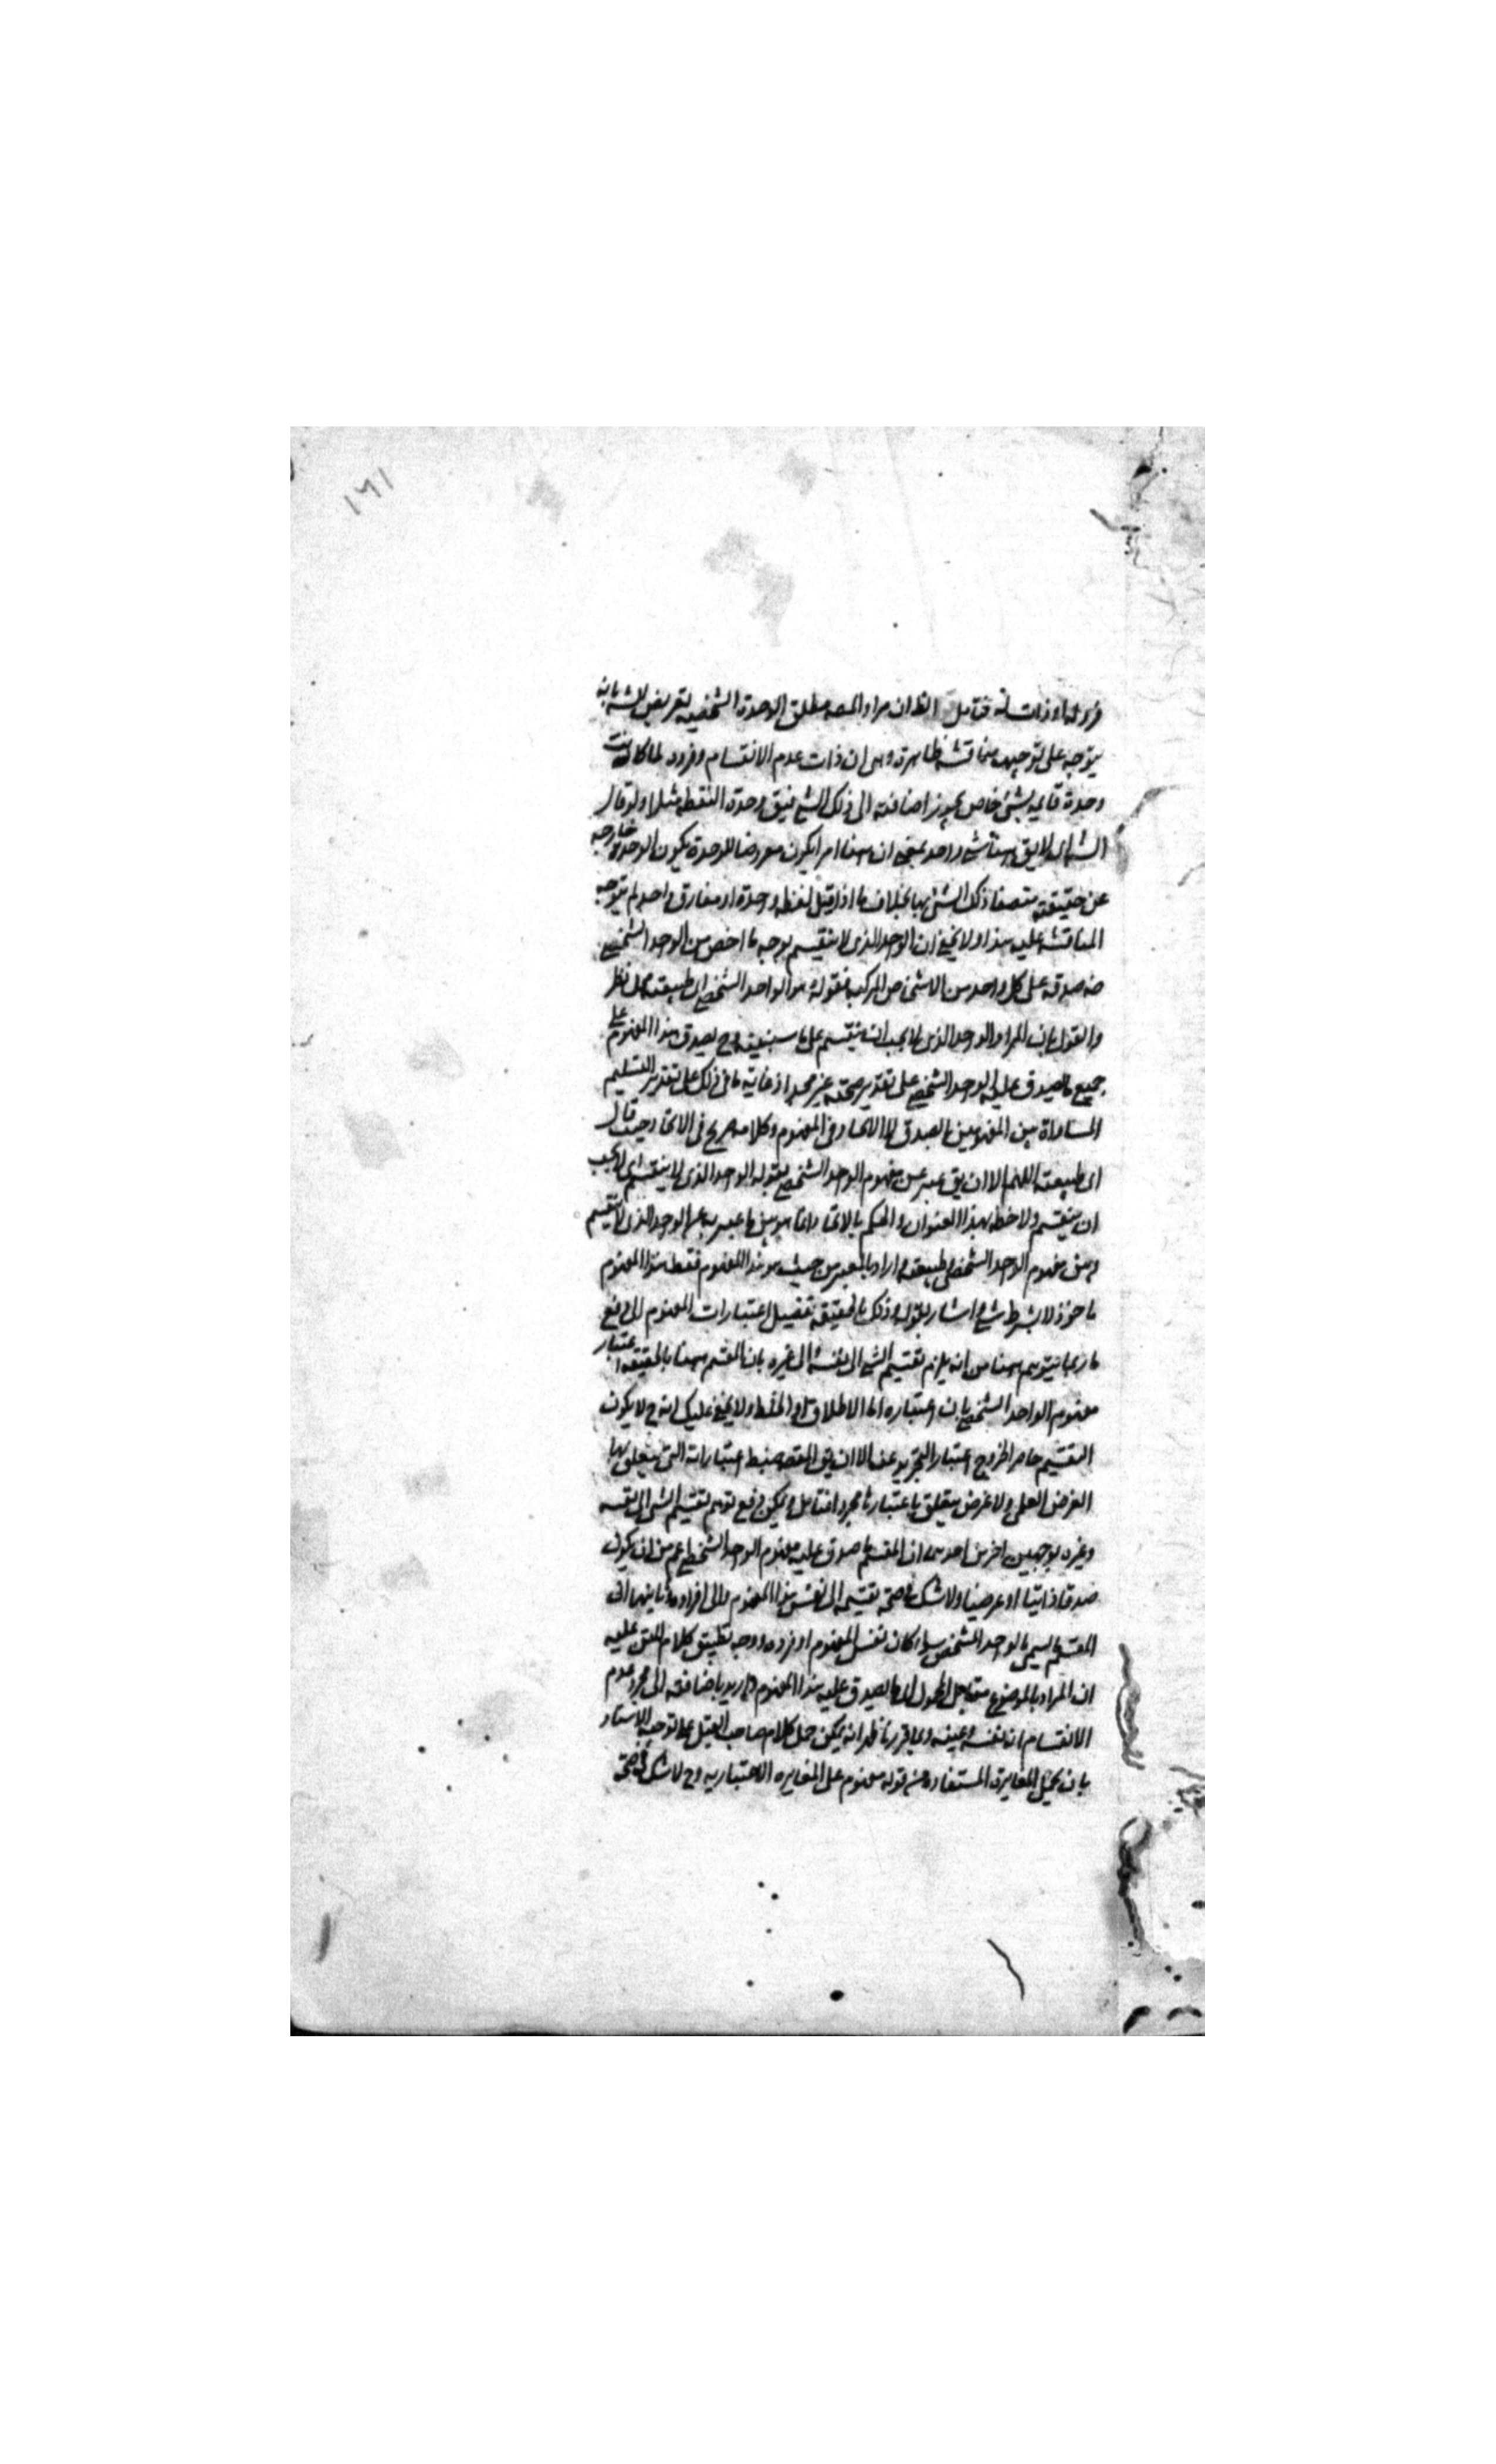 ١٦١
فتامل الظ ان مراد المصه مطلق الوحدة الشخصيه تعريض للشه بانه
يتوجه على توجيهه مناقشة ظاهرة وهى ان ذات عدم الانقسام وفرده لما كانت
وحدة قايمه بشئ خاص يجوز اضافته الى ذلك الشئ فيق وحدة النقطه مثلا ولو قال
لايق هنا شئ واحد بمعنى ان هنا امرا يكون معروضا للوحدة يكون الوحدة خارجه
عن حقيقته متصفا ذلك الشئ بها بخلاف ما اذا قيل نقطه واحدة او مفارق واحد لم يتوجه
المناقشه عليه هذا ولا يخفى ان الواحد الذى لا ينقسم بوجه ما اخص من الواحد الشخصى
صدقه على كل واحد من الاشخاص المركبه فقوله هو الواحد الشخصى اى طبيعته محل نظر
والقول بان المراد الواحد الذى لا يجب ان ينقسم على ما سنبينه وح يصدق هذا المفهوم على
جميع ما يصدق عليه الواحد الشخصى على تقدير صحته غير مجد اذ غاية ما فى ذلك على تقدير التسليم
المساواة بين المفهومين بالصدق لا الاتحاد فى المفهوم وكلامه صريح فى الاتحاد حيث قال
اى طبيعته اللهم الا ان يق عبر عن مفهوم الواحد الشخصى بقوله الواحد الذى لا ينقسم اى لا يجب
ان ينقسم ولاحظه بهذا العنوان والحكم بالاتحاد انما هو بين ما عبر به عن الواحد الذى لا ينقسم
وبين مفهوم الواحد الشخصى طبيعته اراد بالتعبير من حيث هو هذا المفهوم فقط هذا المفهوم
ماخوذ لا بشرط شئ اشار بقوله وذلك بالحقيقه تفصيل اعتبارات المفهوم الى دفع
ما ربما يتوهم ههنا من انه يلزم تقسيم الشئ الى نفسه والى غيره بان المقسم ههنا بالحقيقه اعتبار
مفهوم الواحد الشخصى بان اعتباره اما الاطلاق او الخلط ولا يخفى عليك انه ح لا يكون
التقسيم حاصرا لخروج اعتبار التجريد عنه الا ان يق المقصه ضبط اعتباراته التى يتعلق بها
الغرض العلمى ولا غرض يتعلق باعتباره مجردا فتامل ويمكن دفع توهم تقسيم الشئ الى نفسه
وغيره بوجهين اخرين احدهما ان المقسم ما صدق عليه مفهوم الواحد الشخصى اعم من ان يكون
صدقا ذاتيا او عرضيا ولا شك فى صحة تقسيمه الى نفس هذا المفهوم والى افراده وثانيهما ان
المقسم ما يسمى بالواحد الشخصى سواء كان نفس المفهوم او فرده ووجه تطبيق كلام المتن عليه
ان المراد بالموضوع مقابل المحمول اى ما يصدق عليه هذا المفهوم واريد باضافته الى مجرد عدم
الانقسام انه نفسه وعينه وبما قررنا ظهر انه يمكن حمل كلام صاحب القيل على توجيه الاستاد
بان تحمل المغايرة المستفادة من قوله مفهوم على المغايره الاعتباريه وح لا شك فى صحة